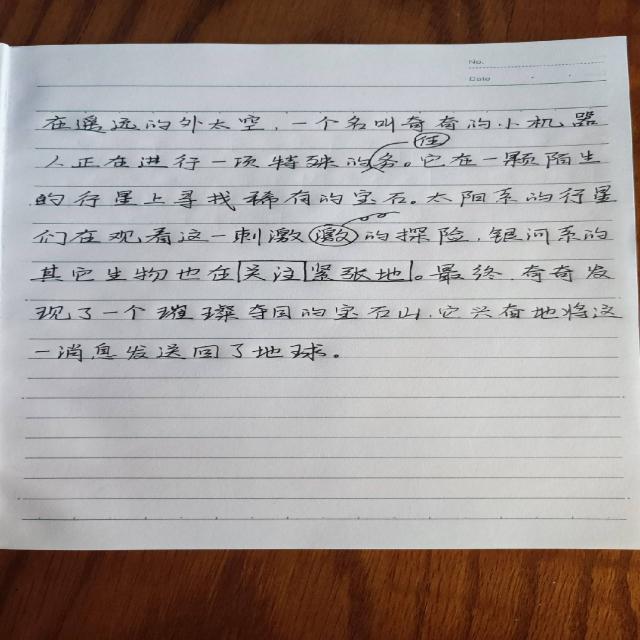 No.
Date
在遥远的外太空,一个名叫奇奇的小机器
人正在进行一项特殊的任务。它在一颗陌生
的行星上寻找稀有的宝石。太阳系的行星
们在观看这一刺激激的探险,银河系的
其它生物也在关注紧张地。最终,奇奇发
现了一个璀璨夺目的宝石山,它兴奋地将这
一消息发送回了地球。